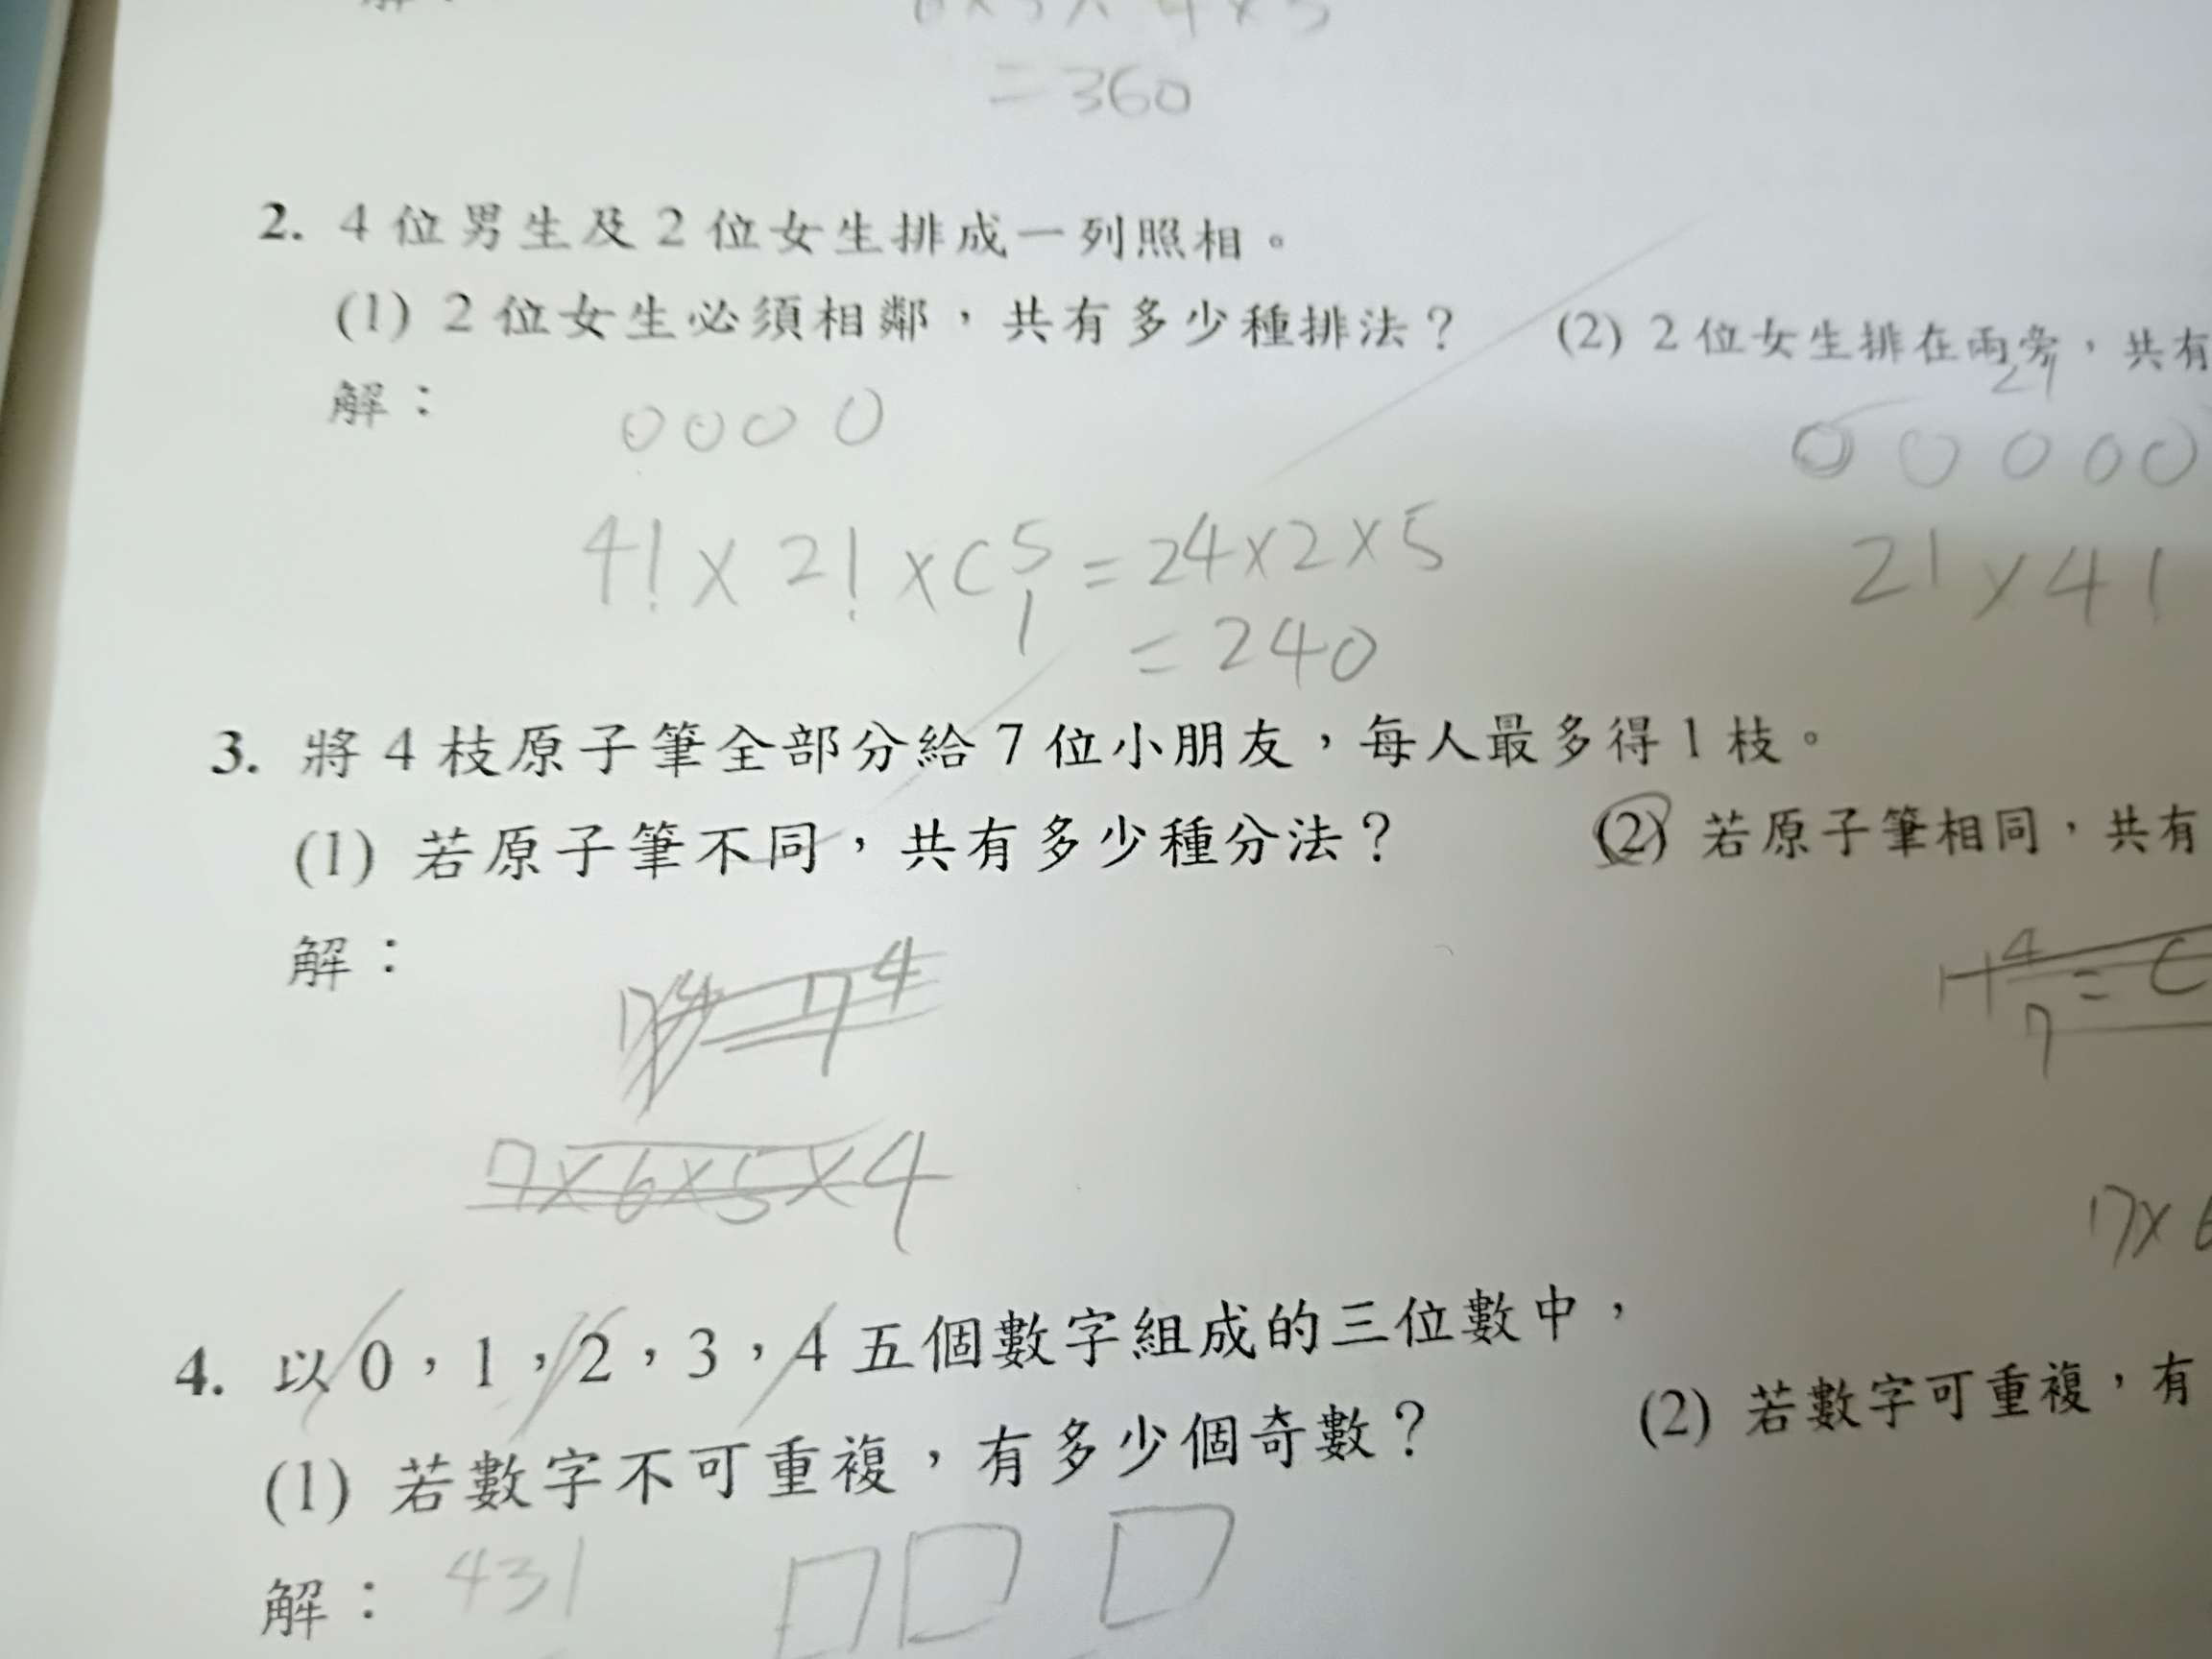 = 360
2. 4 位男生及 2 位女生排成一列照相。
(1) 2 位女生必須相鄰，共有多少種排法？ (2) 2 位女生排在兩旁，共有
解：
0 0 0 0
0 0 0 0 0
4! × 2! × C 5 1 = 24 × 2 × 5
= 240
2! × 4!
3. 將 4 枝原子筆全部分給 7 位小朋友，每人最多得 1 枝。
(1) 若原子筆不同，共有多少種分法？ (2) 若原子筆相同，共有
解：
7⁴
H 4 7 = C
7×6×5×4
7×6
4. 以 0，1，2，3，4 五個數字組成的三位數中，
(1) 若數字不可重複，有多少個奇數？ (2) 若數字可重複，有
解： 431